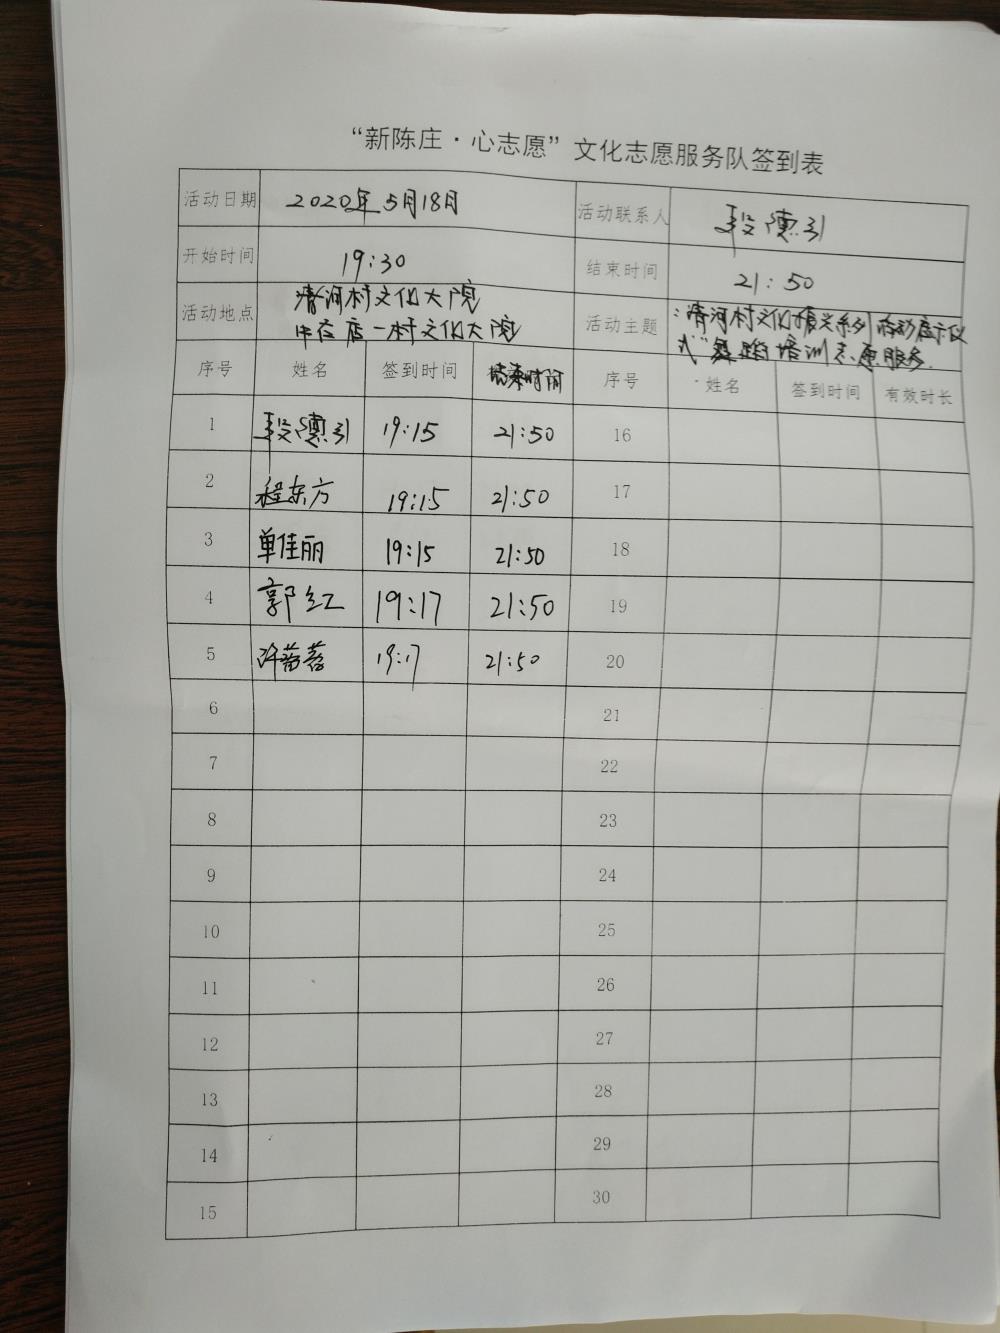 “新陈庄·心志愿”文化志愿服务队签到表
活动日期 2020年5月18日 活动联系人 段德引
开始时间 19:30 结束时间 21:50
活动地点 清河村文化大院
店一村文化大院
活动主题 :清河村文化振兴系列活动启动仪
式”舞蹈培训志愿服务.
序号 姓名 签到时间 结束时间 序号 姓名 签到时间 有效时长
1 段德引 19:15 21:50 16
2 程东方 19:15 21:50 17
3 单佳丽 19:15 21:50 18
4 郭红 19:17 21:50 19
5 许蓉蓉 19:17 21:50 20
6 21
7 22
8 23
9 24
10 25
11 26
12 27
13 28
14 29
15 30